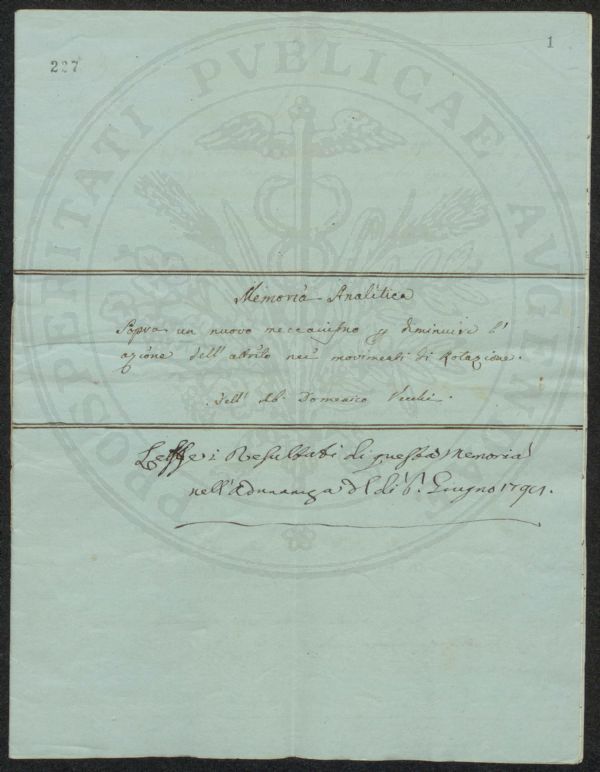 1
227
PROSPERITATI PVBLICAE AVGENDAE
Memoria Analitica
Sopra un nuovo meccanismo p diminuire l'
azione dell'attrito nei movimenti di Rotazione.
Dell' Ab. Domenico Vecchi.
Lesse i Resultati di questa Memoria
nell'Adunanza del dì Giugno